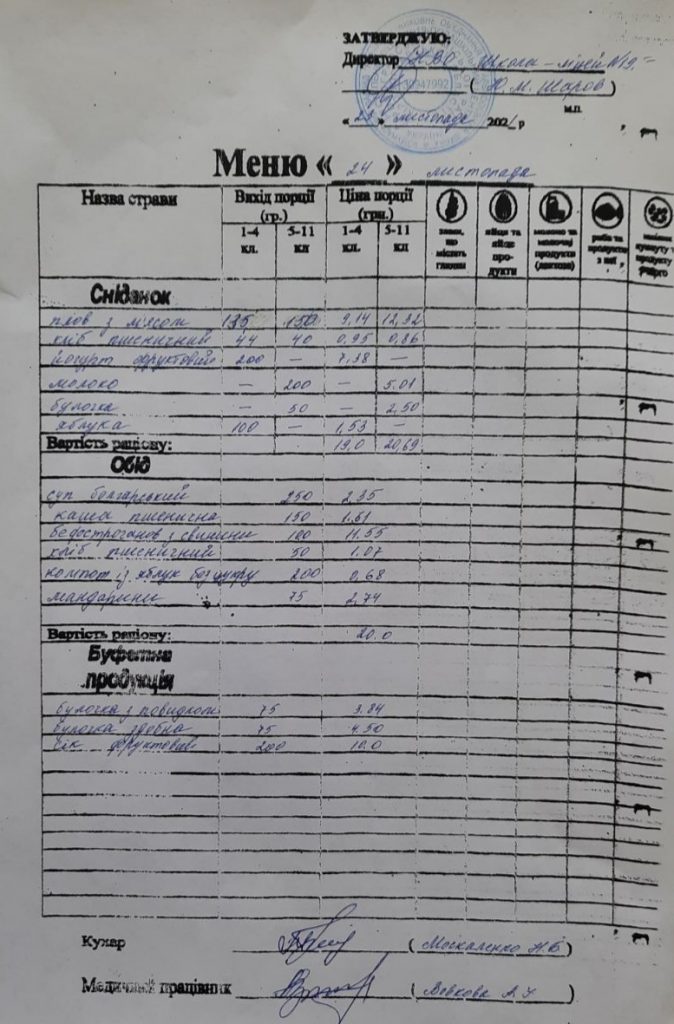 ЗАТВЕРДЖУЮ:
Директор НВО Школа-ліцей №19
( Ю. М. Шаров )
м.п.
« 23 » листопада 2021 р
Меню « 24 » листопада
Назва страви Вихід порції (гр.) Ціна порції (грн.)
1-4 кл. 5-11 кл 1-4 кл. 5-11 кл
злаки, що містять глютен
яйця та яйце продукти
молоко та молочні продукти (лактоза)
риба та продукти з неї
Сніданок
плов з м'ясом 135 150 9,14 12,32
хліб пшеничний 44 40 0,95 0,86
йогурт фруктовий 200 — 7,38 —
молоко — 200 — 5.01
булочка — 50 — 2,50
яблука 100 — 1,53 —
Вартість раціону: 19,0 20,69
Обід
суп болгарський 250 2,35
каша пшенична 150 1.61
бефстроганов з свинини 100 11.55
хліб пшеничний 50 1.07
компот із яблук без цукру 200 0,68
мандарини 75 2,74
Вартість раціону: 20.0
Буфетна
продукція
булочка з повидлом 75 3.84
булочка здобна 75 4.50
сік фруктовий 200 10.0
Кухар ( Москаленко Н.В )
Медичний працівник ( Вовкова )